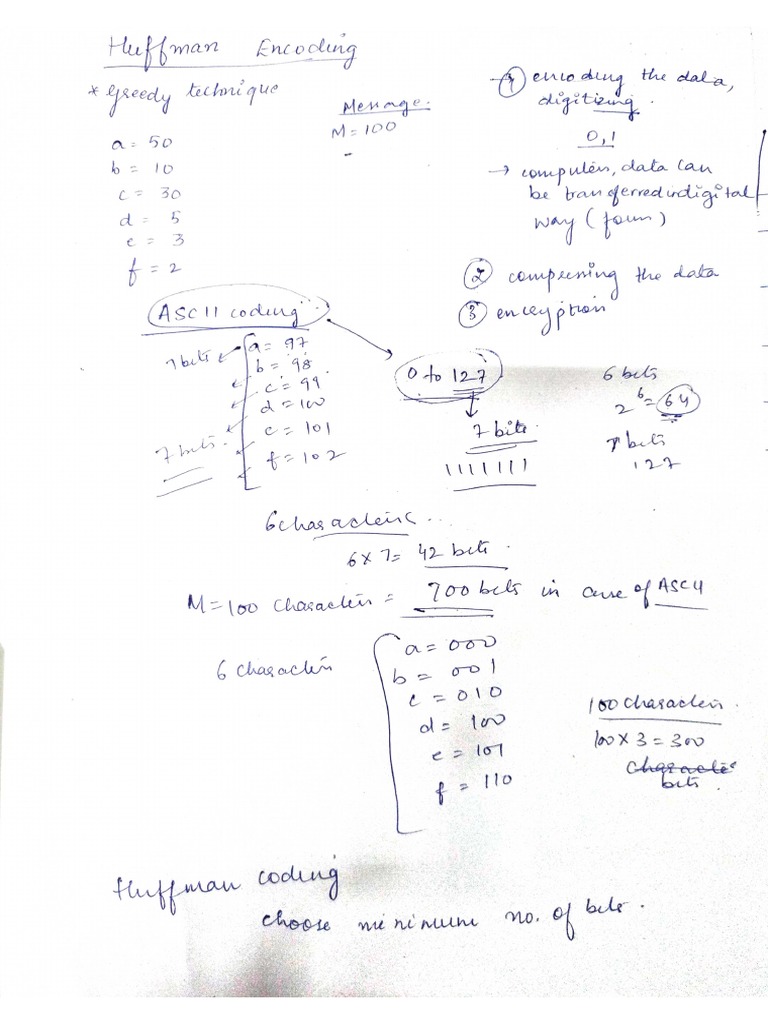 Huffman Encoding
* Greedy technique
Message.
M = 100
a = 50
b = 10
c = 30
d = 5
e = 3
f = 2
→ ① encoding the data,
digitizing.
0,1
→ computers, data can
be transferred digital
way (form)
② compressing the data
③ encryption
ASCII coding
7 bits
a = 97
b = 98
c = 99
d = 100
e = 101
f = 102
7 bits.
0 to 127
7 bits.
1111111
6 bits
2^6 = 64
7 bits
127
6 characters.
6 x 7 = 42 bits.
M = 100 characters = 700 bits in case of ASCII
6 characters
a = 000
b = 001
c = 010
d = 100
e = 101
f = 110
100 characters.
100 x 3 = 300
bits.
Huffman coding
choose minimum no. of bits.